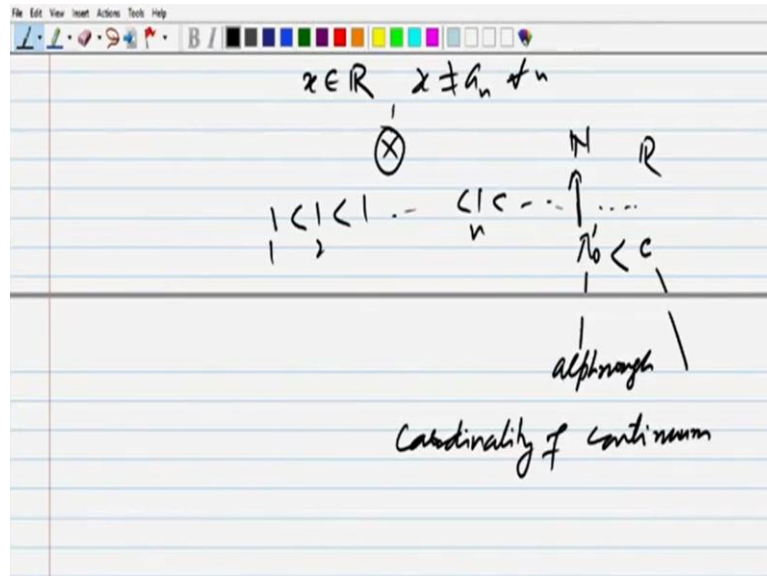 File Edit View Insert Actions Tools Help
B I
x ∈ ℝ x ≠ a_n ∀ n
X
ℕ ℝ
| < | < | .. < | < -- .. | ....
1 2 n ℵ₀ < c
alphnough
Cardinality of continuum